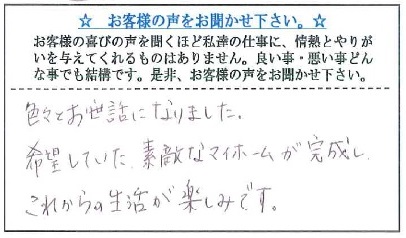 ☆ お客様の声をお聞かせ下さい。☆
お客様の喜びの声を聞くほど私達の仕事に、情熱とやりが
いを与えてくれるものはありません。良い事・悪い事どん
な事でも結構です。是非、お客様の声をお聞かせ下さい。
色々とお世話になりました。
希望していた、素敵なマイホームが完成し、
これからの生活が楽しみです。